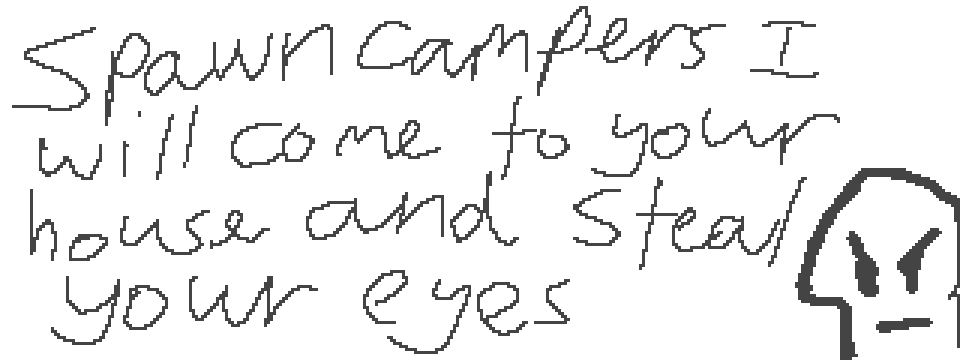 Spawn campers I
will come to your
house and steal
your eyes